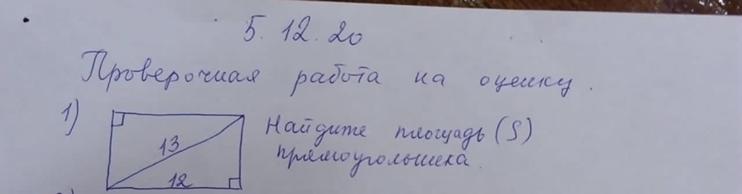 5.12.20
Проверочная работа на оценку.
1)
13
12
Найдите площадь (S)
прямоугольника.